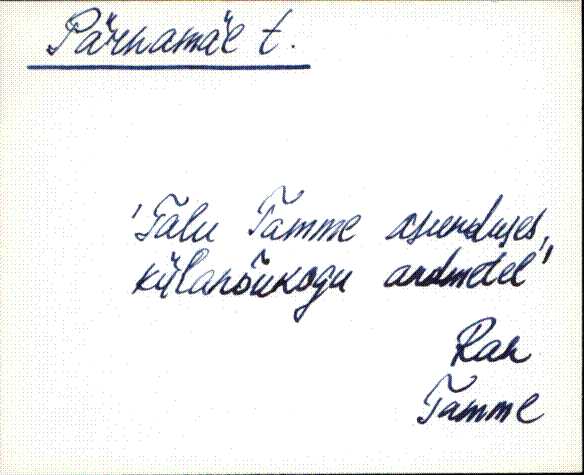 Pärnamäe t.
'Talu Tamme asunduses,
külanõukogu andmetel'
Ran
Tamme